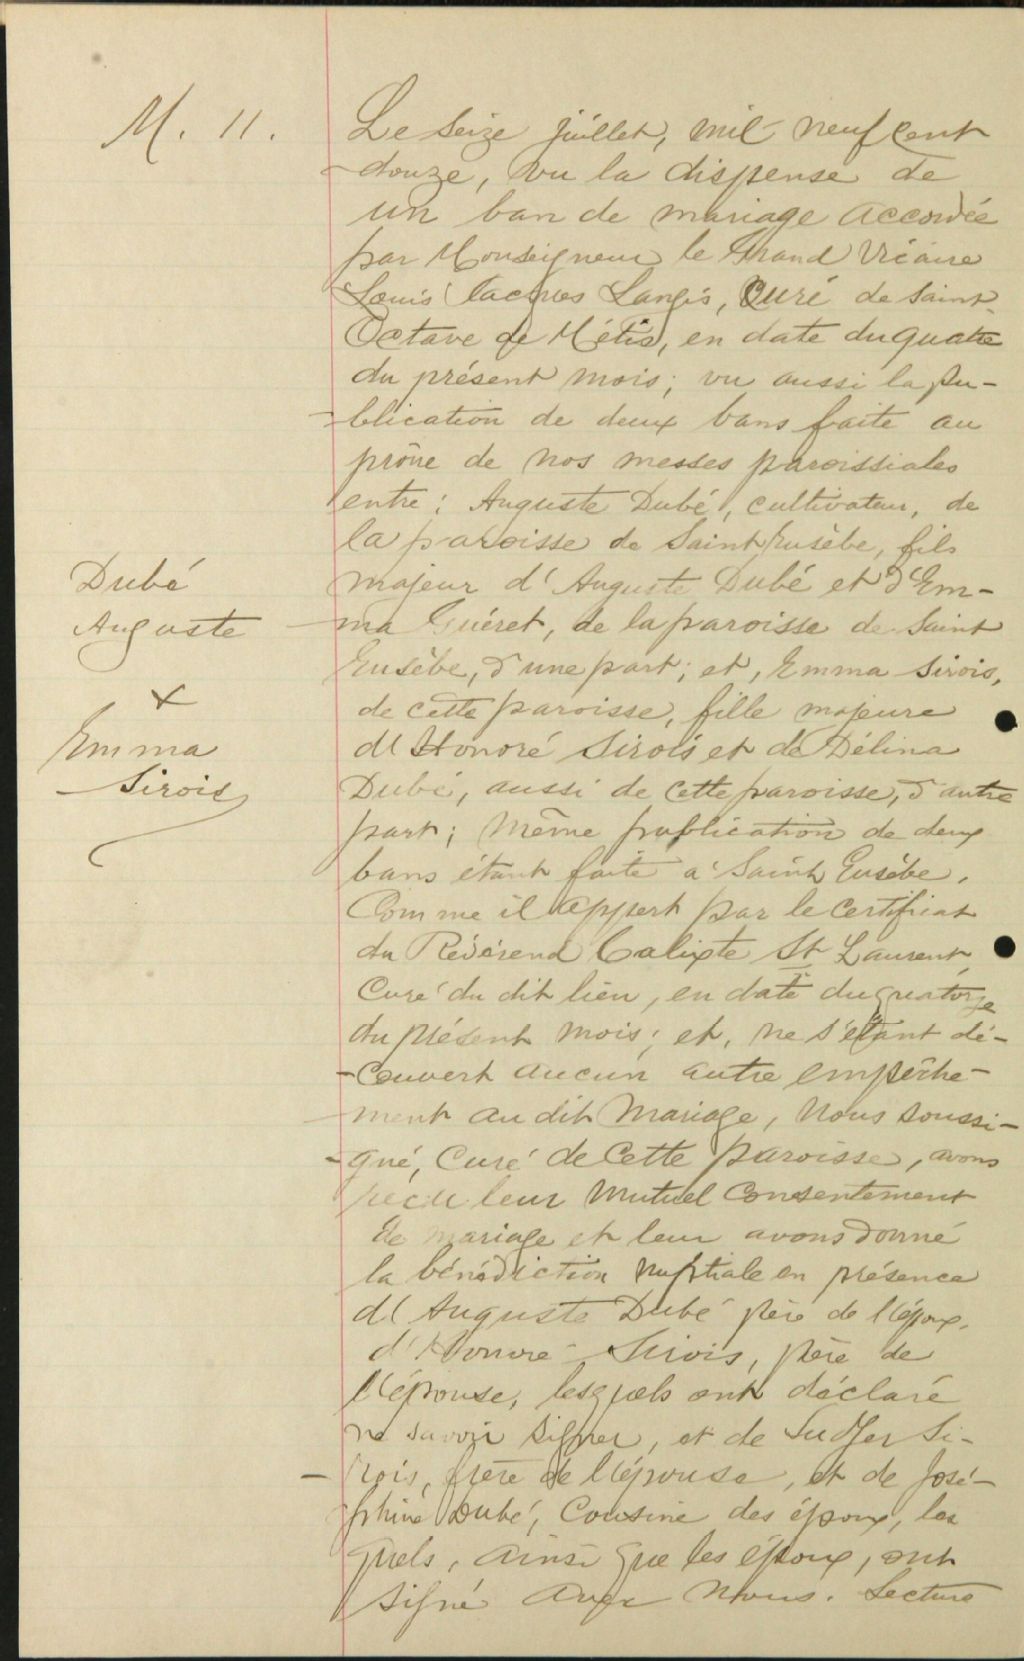 M. 11.
Le seize juillet, mil neuf cent
douze, vu la dispense de
un ban de mariage accordée
par Monseigneur le Grand Vicaire
Louis Jacques Langis, Curé de Saint
Octave de Métis, en date du quatre
du présent mois; vu aussi la pu-
-blication de deux bans faite au
prône de nos messes paroissiales
entre: Auguste Dubé, cultivateur, de
la paroisse de Saint Eusèbe, fils
majeur d'Auguste Dubé et d'Em-
-ma Guéret, de la paroisse de Saint
Eusèbe, d'une part; et, Emma Sirois,
de cette paroisse, fille majeure
d'Honoré Sirois et de Délina
Dubé, aussi de cette paroisse, d'autre
part; même publication de deux
bans étant faite à Saint Eusèbe,
Comme il appert par le certificat
du Révérend Calixte St Laurent,
Curé du dit lieu, en date du quatorze
du présent mois; et, ne s'étant dé-
-couvert aucun autre empêche-
-ment au dit mariage, Nous soussi-
-gné, Curé de Cette paroisse, avons
reçu leur mutuel consentement
de mariage et leur avons donné
la bénédiction nuptiale en présence
d'Auguste Dubé père de l'époux,
d'Honoré Sirois, père de
l'épouse, lesquels ont déclaré
ne savoir signer, et de Ludger Si-
-rois, frère de l'épouse, et de José-
-phine Dubé, Cousine des époux, les
quels, ainsi que les époux, ont
signé avec Nous. Lecture
Dubé
Auguste
x
Emma
Sirois